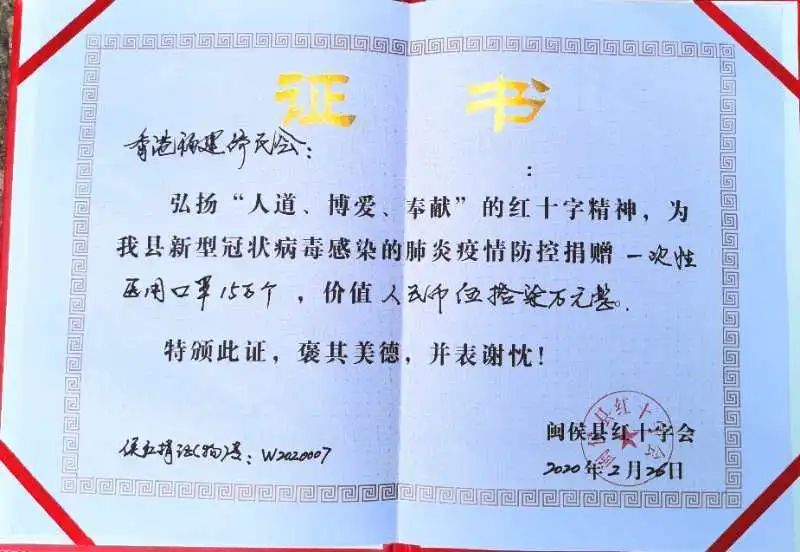 证 书
香港福建侨民会：
：
弘扬“人道、博爱、奉献”的红十字精神，为
我县新型冠状病毒感染的肺炎疫情防控捐赠 一次性
医用口罩15万个 ，价值 人民币伍拾柒万元整。
特颁此证，褒其美德，并表谢忱！
闽侯县红十字会
侯红捐证(物)号：W2020007
2020 年 2 月 26 日
闽侯县红十字会